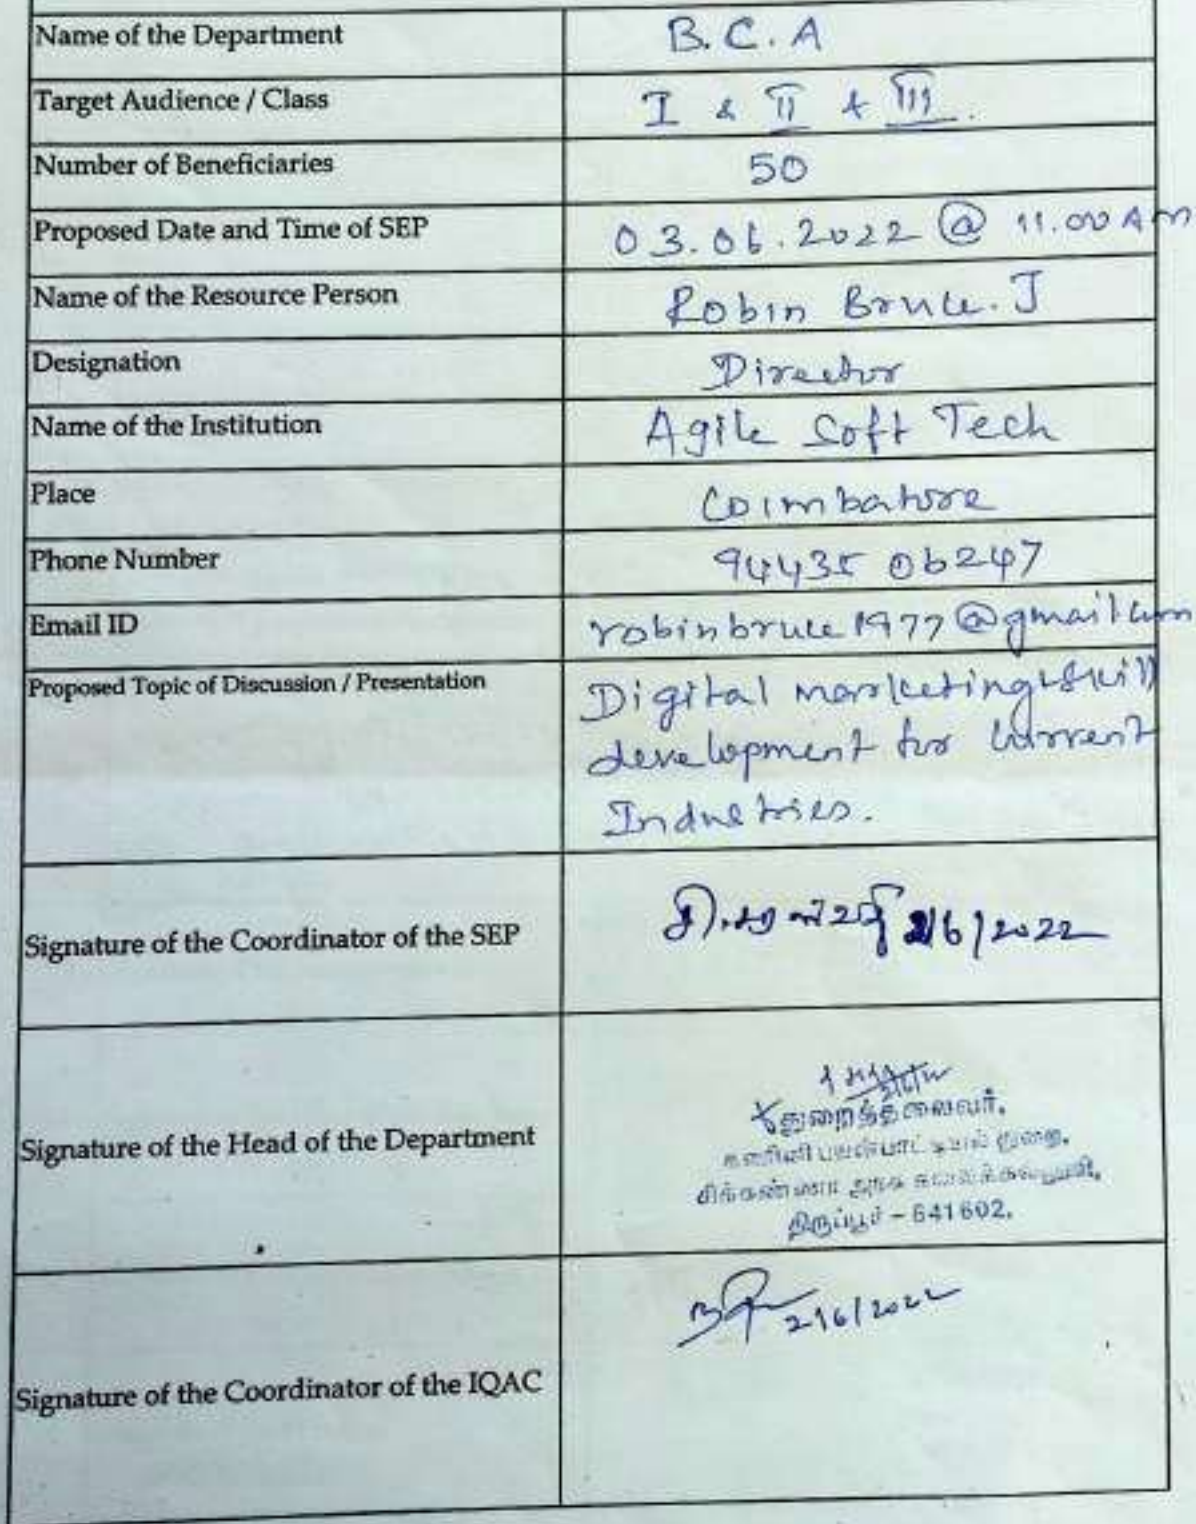 Name of the Department B.C.A
Target Audience / Class I & II & III.
Number of Beneficiaries 50
Proposed Date and Time of SEP 03.06.2022 @ 11.00 AM
Name of the Resource Person Robin Bruce. J
Designation Director
Name of the Institution Agile Soft Tech
Place Coimbatore
Phone Number 94435 06247
Email ID robinbruce1977@gmail.com
Proposed Topic of Discussion / Presentation Digital marketing skill
development for current
Industries.
Signature of the Coordinator of the SEP 2/6/2022
துறைத்தலைவர்,
Signature of the Head of the Department கணினி பயன்பாட்டியல் துறை,
சிக்கண்ணா அரசு கலைக்கல்லூரி,
திருப்பூர் - 641602.
2/6/2022
Signature of the Coordinator of the IQAC